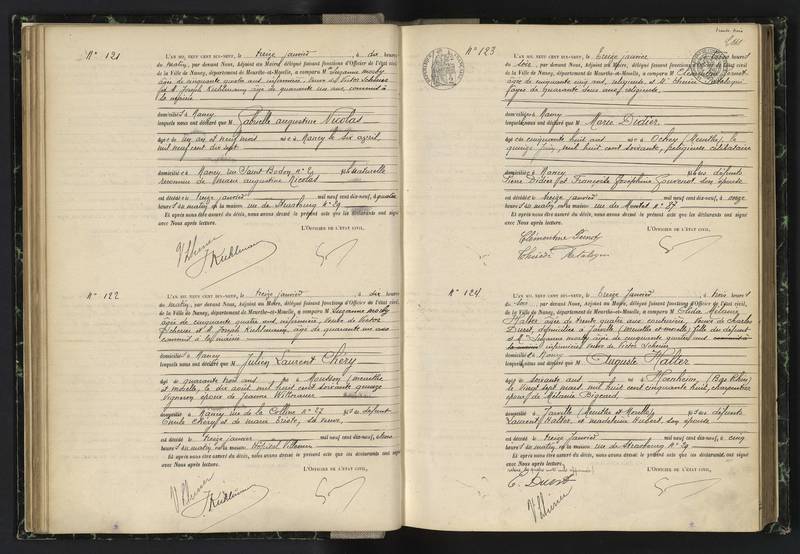 N° 121
L'AN MIL NEUF CENT DIX-NEUF, le treize janvier, à dix heures
du matin, par devant Nous, Adjoint au Maire, délégué faisant fonctions d'Officier de l'état civil
de la Ville de Nancy, département de Meurthe-et-Moselle, a comparu M Suzanne
âgée de cinquante quatre ans infirmière, veuve de Victor
et M Joseph Kuhlmann âgé de quarante un ans, commis à
la mairie
domiciliés à Nancy
lesquels nous ont déclaré que M Gabrielle Augustine Nicolas
âgé de un an et neuf mois né à Nancy le six avril
mil neuf cent dix sept
domicilié à Nancy rue Saint Bodon n° 29 fille naturelle
reconnue de Marie Augustine Nicolas
est décédé le treize janvier mil neuf cent dix-neuf, à quatre
heures du matin, en la maison rue de Strasbourg n° 29
Et après nous être assuré du décès, nous avons dressé le présent acte que les déclarants ont signé
avec Nous après lecture.
L'OFFICIER DE L'ÉTAT CIVIL,
J. Kuhlmann
N° 122
L'AN MIL NEUF CENT DIX-NEUF, le treize janvier, à dix heures
du matin, par devant Nous, Adjoint au Maire, délégué faisant fonctions d'Officier de l'état civil,
de la Ville de Nancy, département de Meurthe-et-Moselle, a comparu M Suzanne
âgée de cinquante quatre ans, infirmière, veuve de Victor
et M Joseph Kuhlmann, âgé de quarante un ans
commis à la mairie
domiciliés à Nancy
lesquels nous ont déclaré que M Julien Laurent Chéry
âgé de quarante trois ans né à Mousson (Meurthe
et Moselle, le dix août mil huit cent soixante quinze
Vigneron époux de Jeanne
domicilié à Nancy rue de la Colline n° 27 fils de défunt
Emile Chéry et de Marie, sa veuve,
est décédé le treize janvier mil neuf cent dix-neuf, à
heures du matin, en la maison
Et après nous être assuré du décès, nous avons dressé le présent acte que les déclarants ont signé
avec Nous après lecture.
L'OFFICIER DE L'ÉTAT CIVIL,
J. Kuhlmann
N° 123
L'AN MIL NEUF CENT DIX-NEUF, le treize janvier, à heures
du soir, par devant Nous, Adjoint au Maire, délégué faisant fonctions d'Officier de l'état civil
de la Ville de Nancy, département de Meurthe-et-Moselle, a comparu M Clémentine
âgée de cinquante cinq ans, religieuse et M
âgée de quarante ans, religieuse.
domiciliées à Nancy
lesquels nous ont déclaré que M Marie Didier
âgé de cinquante huit ans né à Ochey (Meurthe), le
quinze juin, mil huit cent soixante, religieuse célibataire
domicilié à Nancy fille de défunts
Pierre Didier et Françoise Joséphine, son épouse
est décédé le treize janvier mil neuf cent dix-neuf, à onze
heures du matin, en la maison rue du Montet n° 37
Et après nous être assuré du décès, nous avons dressé le présent acte que les déclarants ont signé
avec Nous après lecture.
L'OFFICIER DE L'ÉTAT CIVIL,
Clémentine
N° 124
L'AN MIL NEUF CENT DIX-NEUF, le treize janvier, à trois heures
du soir, par devant Nous, Adjoint au Maire, délégué faisant fonctions d'Officier de l'état civil,
de la Ville de Nancy, département de Meurthe-et-Moselle, a comparu M
Halter âgée de trente quatre ans, couturière, veuve de Charles
Duret, domiciliée à Joeuf (Meurthe et Moselle) fille du défunt
et M Suzanne âgée de cinquante quatre ans
infirmière veuve de Victor
domiciliée à Nancy
lesquels nous ont déclaré que M Auguste Halter
âgé de soixante ans né à Hoenheim (Bas Rhin)
le vingt sept mars mil huit cent cinquante huit, charpentier
époux de Mélanie Bigeard
domicilié à Joeuf (Meurthe et Moselle) fils de défunts
Laurent Halter, et Madeleine Hubert, son épouse
est décédé le treize janvier mil neuf cent dix-neuf, à cinq
heures du matin, en la maison rue de Strasbourg n° 29
Et après nous être assuré du décès, nous avons dressé le présent acte que les déclarants ont signé
avec Nous après lecture.
L'OFFICIER DE L'ÉTAT CIVIL,